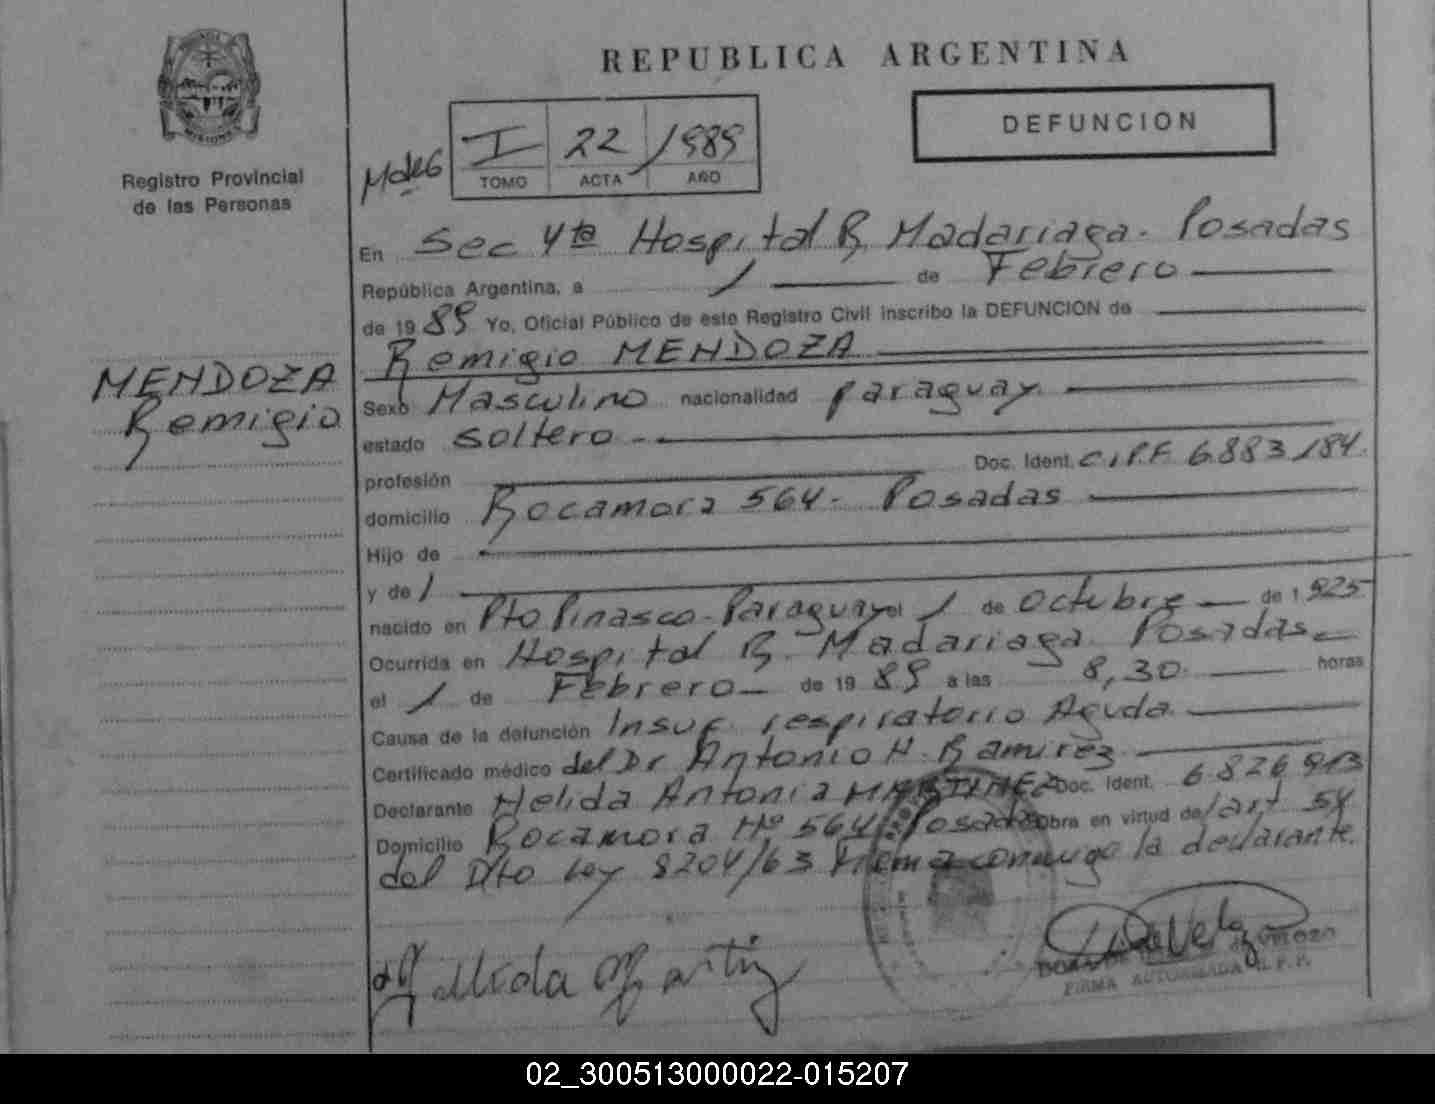 REPUBLICA ARGENTINA
DEFUNCION
MISIONES
Registro Provincial
de las Personas
I 22 1989
TOMO ACTA AÑO
En Sec 4ta Hospital R. Madariaga - Posadas
República Argentina, a 1 de Febrero
de 1989 Yo, Oficial Público de este Registro Civil inscribo la DEFUNCION de
Remigio MENDOZA
MENDOZA
Remigio
Sexo Masculino nacionalidad paraguay.
estado soltero -
profesión Doc. Ident. C.I.P.F. 6.883.184.
domicilio Rocamora 564 - Posadas
Hijo de
y de
nacido en Pto Pinasco - Paraguay el 1 de Octubre de 1925
Ocurrida en Hospital R. Madariaga Posadas
el 1 de Febrero de 1989 a las 8,30 horas
Causa de la defunción Insuf. respiratorio Aguda.
Certificado médico del Dr Antonio H. Ramirez
Declarante Helida Antonia MARTINEZ Doc. Ident. 6.826.913
Domicilio Rocamora Nº 564 Posadas Obra en virtud de art 54
del Dto Ley 8204/63 Firma conmigo la declarante.
FIRMA AUTORIZADA R.P.P.
02_300513000022-015207